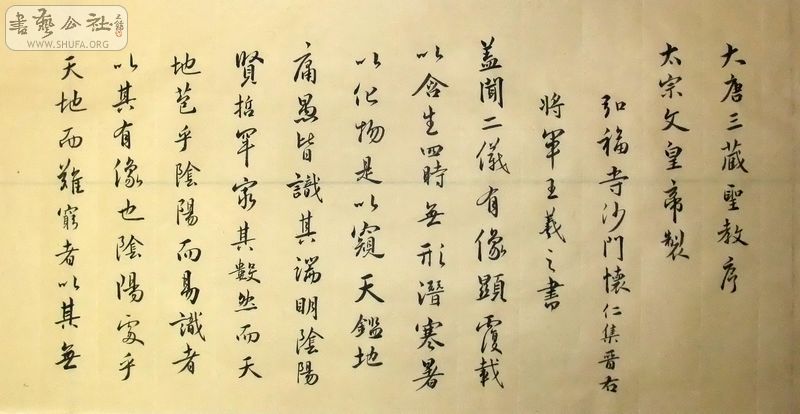 大唐三藏聖教序
太宗文皇帝製
弘福寺沙門懷仁集晉右
將軍王羲之書
蓋聞二儀有像顯覆載
以含生四時無形潛寒暑
以化物是以窺天鑑地
庸愚皆識其端明陰陽
賢哲罕窮其數然而天
地苞乎陰陽而易識者
以其有像也陰陽處乎
天地而難窮者以其無
書藝公社
WWW.SHUFA.ORG